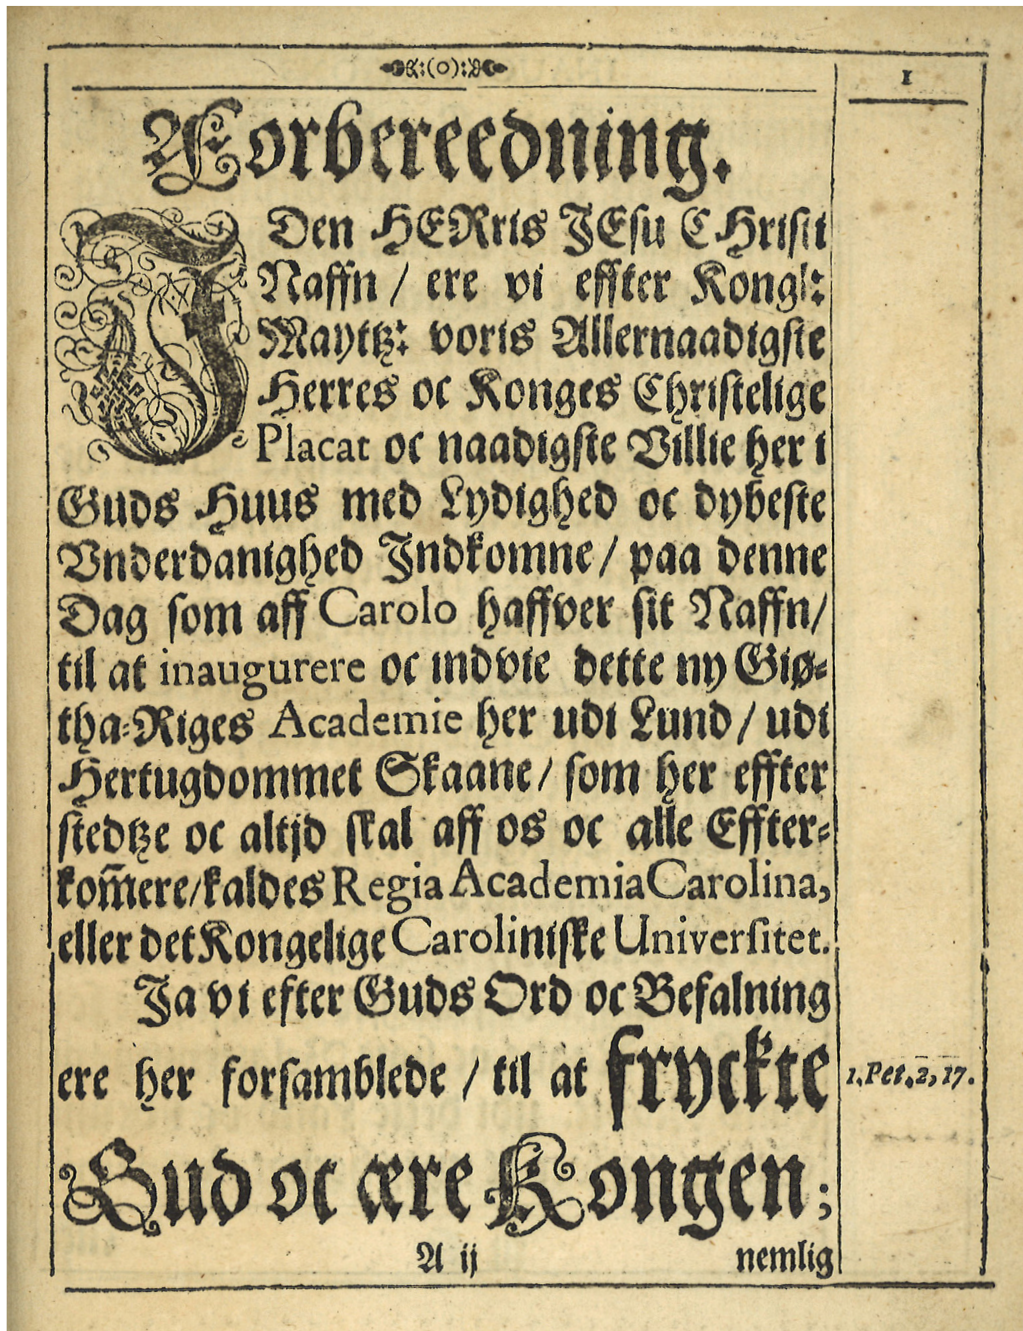 :(o):
1
Forbereedning.
I Den HERris JEsu CHristi
Naffn / ere vi effter Kongl:
Maytꜩ: voris Allernaadigste
Herres oc Konges Christelige
Placat oc naadigste Villie her i
Guds Huus med Lydighed oc dybeste
Vnderdanighed Indkomne / paa denne
Dag som aff Carolo haffver sit Naffn/
til at inaugurere oc indvie dette ny Giø-
tha-Riges Academie her udi Lund / udi
Hertugdommet Skaane / som her effter
stedtze oc altjd skal aff os oc alle Effter-
kom̃ere/kaldes Regia Academia Carolina,
eller det Kongelige Caroliniske Universitet.
Ja vi efter Guds Ord oc Befalning
ere her forsamblede / til at fryckte
1. Pet. 2, 17.
Gud oc ære Kongen;
A ij
nemlig